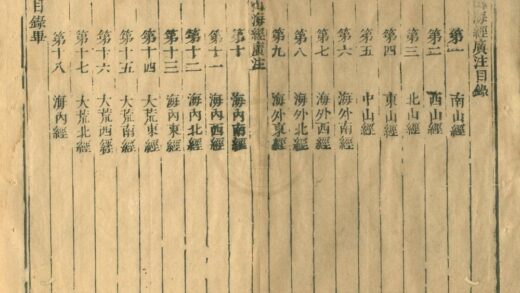 山海經廣注目錄
第一 南山經
第二 西山經
第三 北山經
第四 東山經
第五 中山經
第六 海外南經
第七 海外西經
第八 海外北經
第九 海外東經
山海經廣注
第十 海內南經
第十一 海內西經
第十二 海內北經
第十三 海內東經
第十四 大荒東經
第十五 大荒南經
第十六 大荒西經
第十七 大荒北經
第十八 海內經
目錄畢